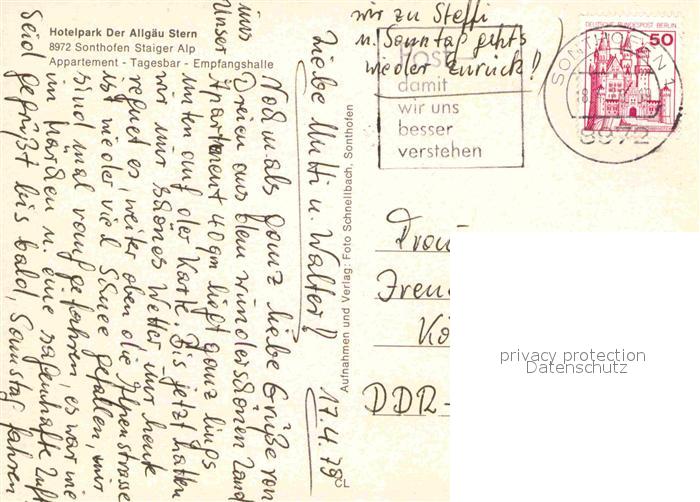 Hotelpark Der Allgäu Stern
8972 Sonthofen Staiger Alp
Appartement - Tagesbar - Empfangshalle
17.4.78
Liebe Mutti u. Walter!
Nochmals ganz liebe Grüße von
uns
Dreien aus dem wunderschönen Land
Unser Apartment 40qm liegt ganz links
unten auf der Karte. Bis jetzt hatten
wir nur schönes Wetter, nur heute
regnet es, weiter oben die Alpenstrasse
ist wieder viel Schnee gefallen, wir
sind mal rauf gefahren, es war wie
im Märchen u. eine sagenhafte Luft
Seid gegrüßt bis bald, Samstag fahren
wir zu Steffi
u. Sonntag gehts
wieder zurück!
Aufnahmen und Verlag: Foto Schnellbach, Sonthofen
CL
Post
damit
wir uns
besser
verstehen
SONTHOFEN 1
8972
DEUTSCHE BUNDESPOST BERLIN
50
DDR-
privacy protection
Datenschutz